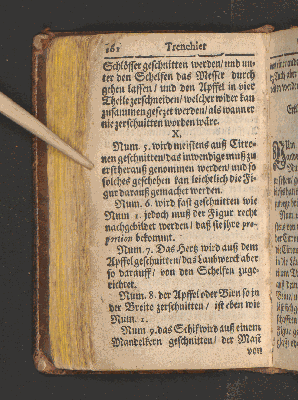 161 Trenchier
Schlösser geschnitten werden/ und un-
ter den Schelfen das Messer durch
gehen lassen/ und den Apffel in vier
Theile zerschneiden/ welcher wider kan
zusammen gesezt werden/ als wann er
nie zerschnitten worden wäre.
X.
Num. 5. wird meistens auß Citro-
nen geschnitten/ das inwendige muß zu
erst herauß genommen werden/ und so
solches geschehen kan leichtlich die Fi-
gur darauß gemachet werden.
Num. 6. wird fast geschnitten wie
Num 1. jedoch muß der Figur recht
nachgebildet werden/ daß sie jhre pro-
portion bekommt.
Num. 7. Das Hertz wird auß dem
Apffel geschnitten/ das Laubwerck aber
so darauff/ von den Schelfen zuge-
richtet.
Num. 8. der Apffel oder Birn so in
der Breite zerschnitten/ ist eben wie
Num. 1.
Num 9. das Schiff wird auß einem
Mandelkern geschnitten/ der Mast
von